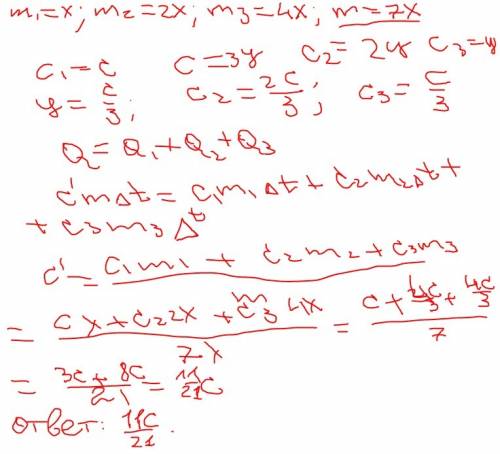 m₁=x; m₂=2x; m₃=4x; m=7x
c₁=c c=3y c₂=2y c₃=y
y=c/3; c₂=2c/3; c₃=c/3
Q=Q₁+Q₂+Q₃
c'mΔt=c₁m₁Δt+c₂m₂Δt+
+c₃m₃Δt
c'=(c₁m₁+c₂m₂+c₃m₃)/m
=(cx+c₂2x+c₃4x)/7x=(c+4c/3+4c/3)/7
=(3c+8c)/21=11/21c
ответ: 11c/21.